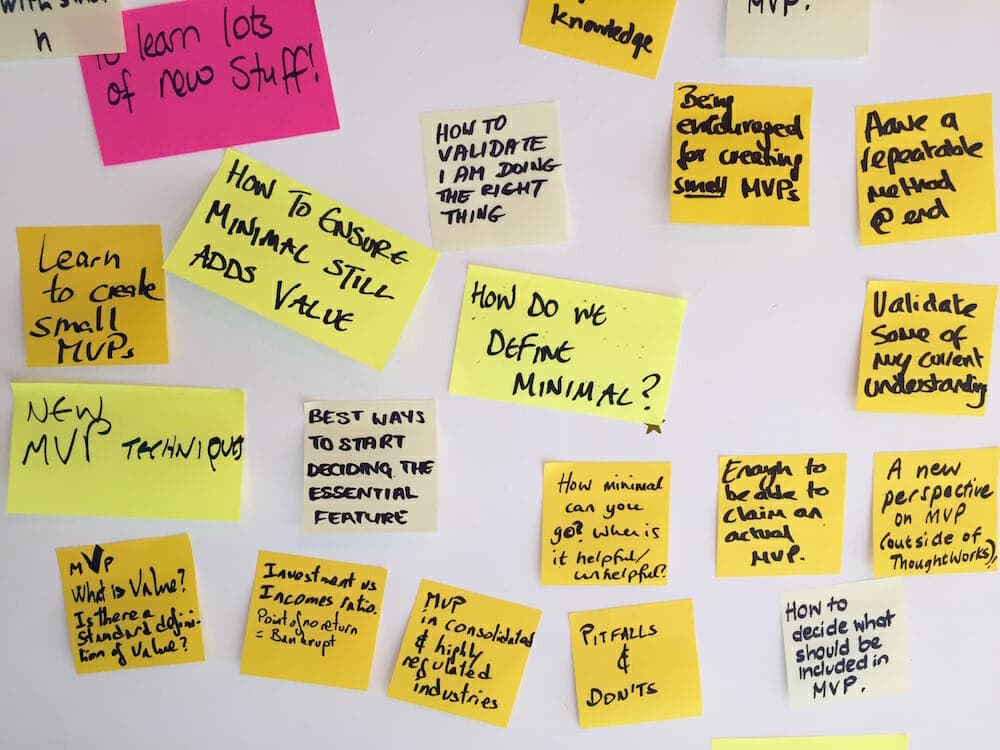 n
to learn lots
of new stuff!
knowledge
MVP.
HOW TO
VALIDATE
I AM DOING
THE RIGHT
THING
Being
encouraged
for creating
small MVPs
Have a
repeatable
method
@ end
HOW TO ENSURE
MINIMAL STILL
ADDS VALUE
Learn
to create
small
MVPs
HOW DO WE
DEFINE
MINIMAL?
Validate
some of
my current
understanding
NEW
MVP TECHNIQUES
BEST WAYS
TO START
DECIDING THE
ESSENTIAL
FEATURE
How minimal
can you
go? When is
it helpful/
unhelpful?
Enough to
be able to
claim an
actual
MVP.
A new
perspective
on MVP
(outside of
ThoughtWorks)
MVP
What is Value?
Is there a
standard defini-
tion of value?
Investment vs
Incomes ratio.
Point of no return
= Bankrupt
MVP
in consolidated
& highly
regulated
industries
PITFALLS
&
DON'TS
How to
decide what
should be
included in
MVP.